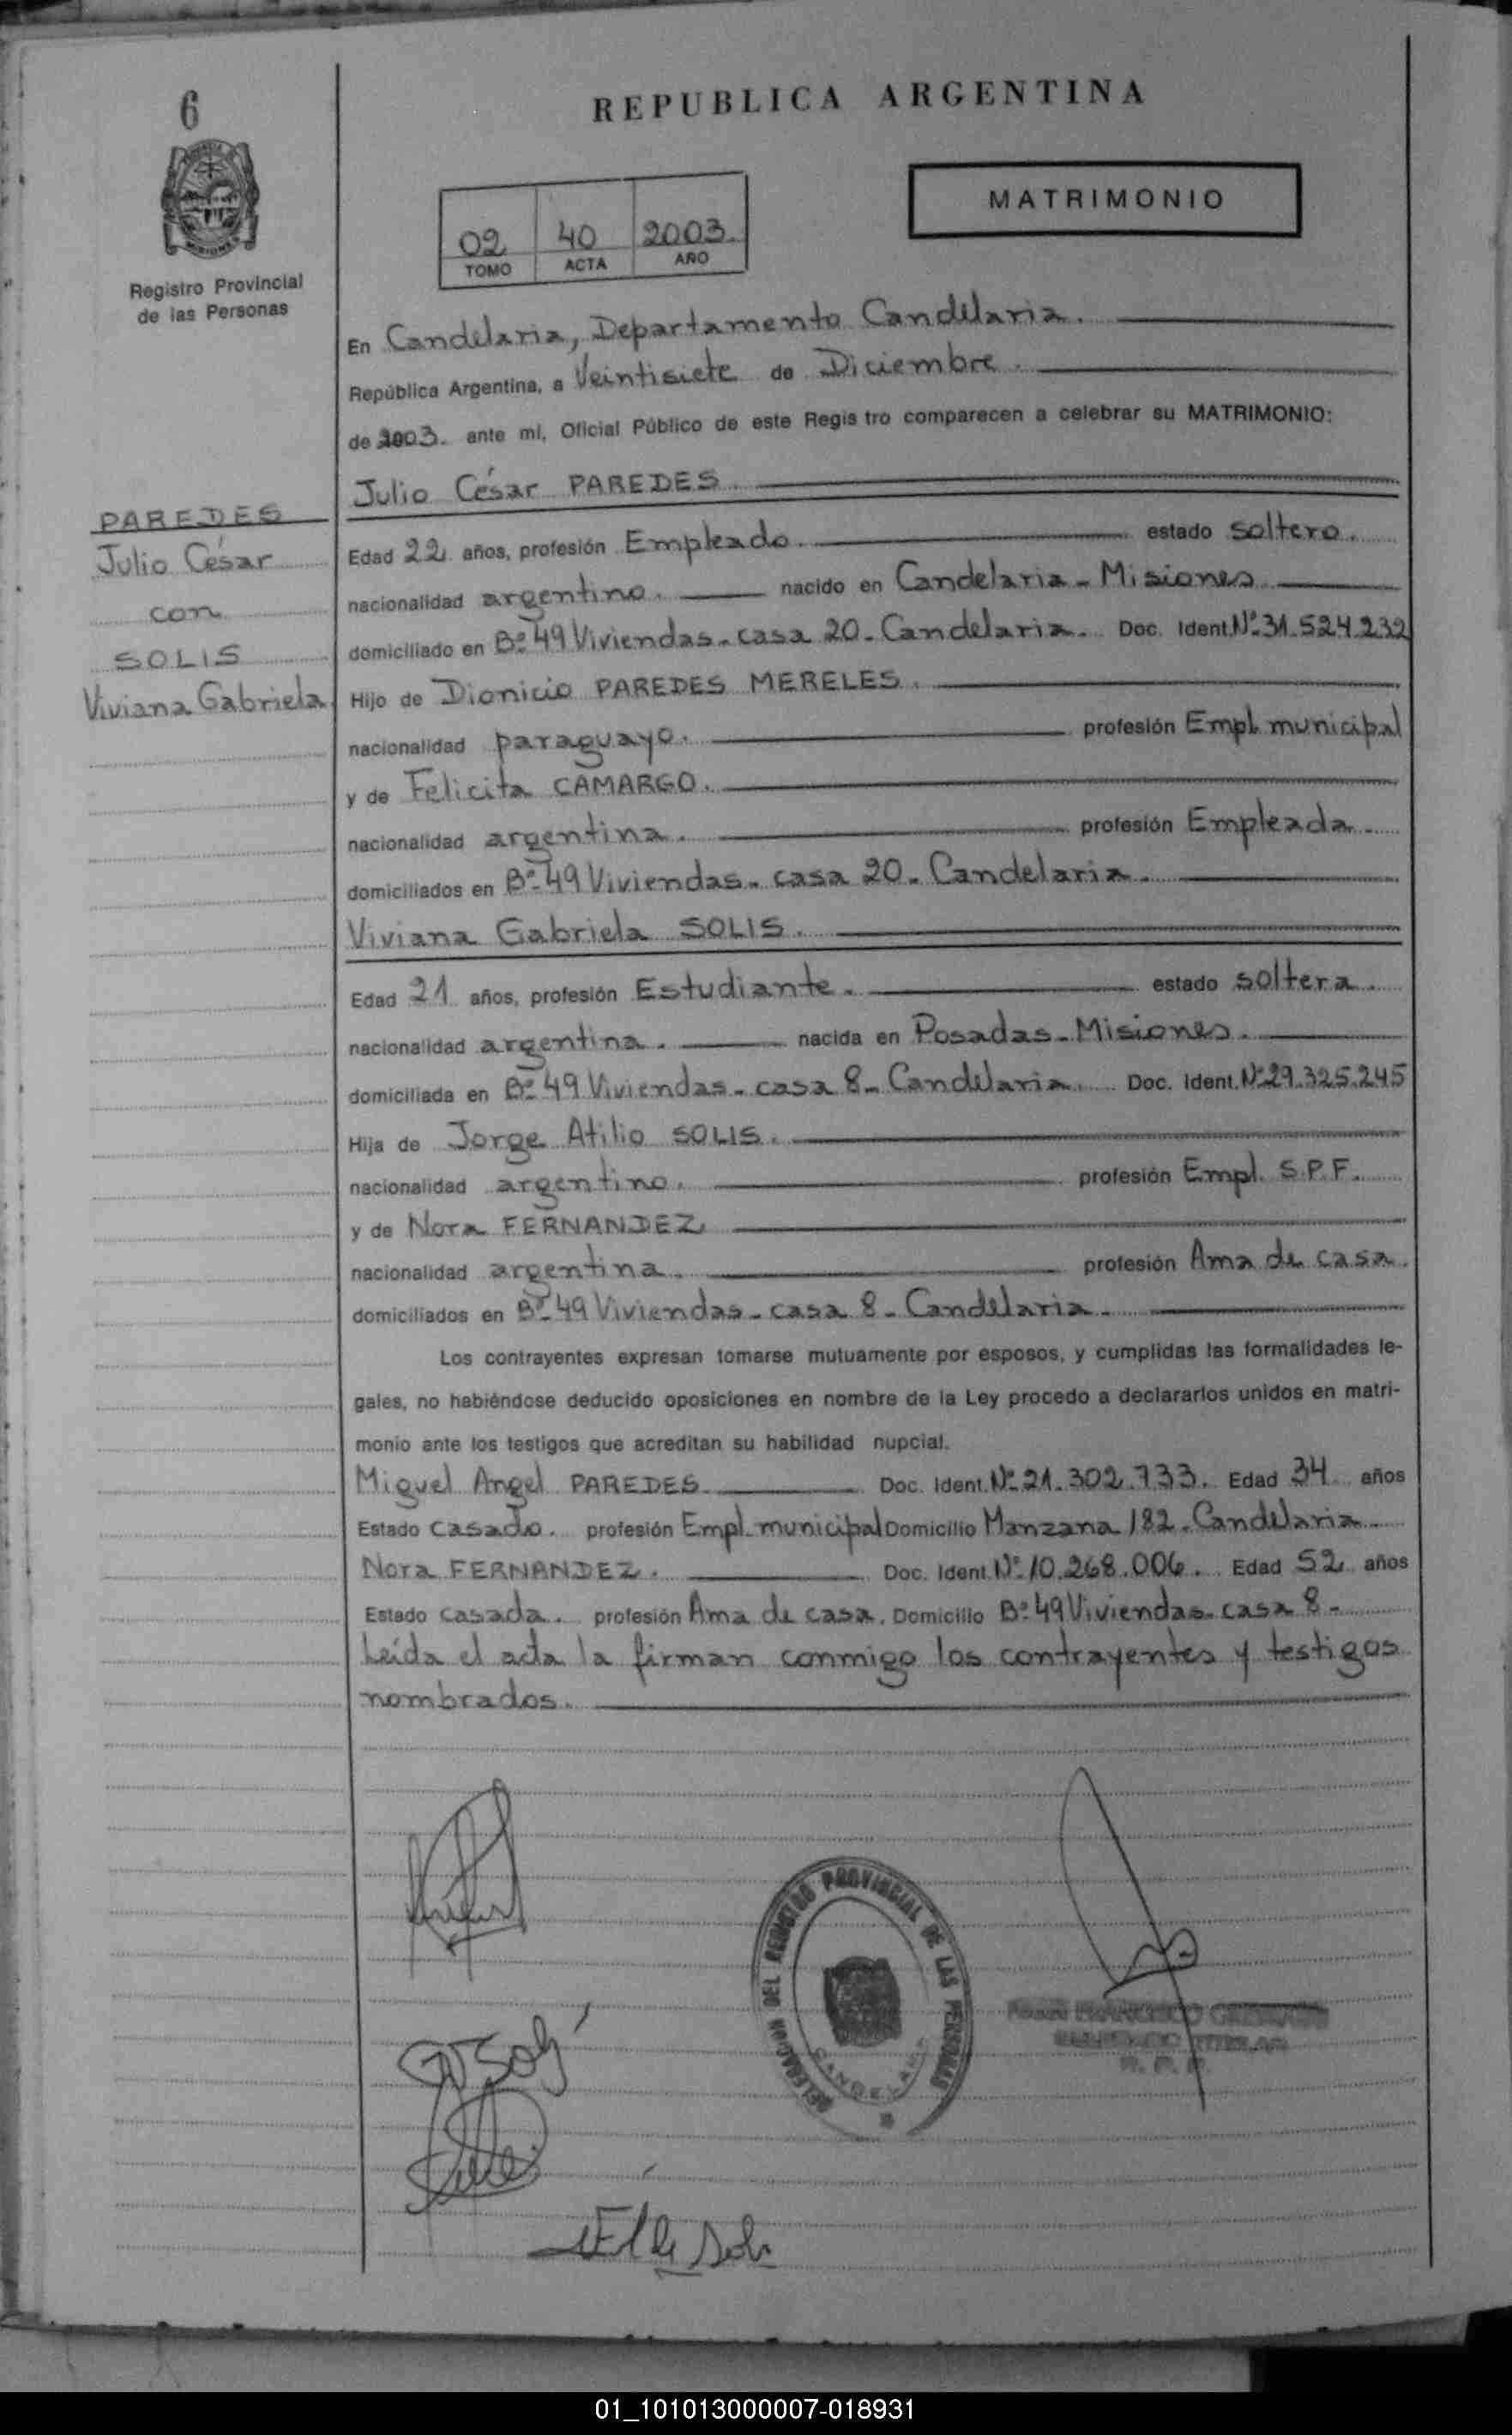 6
REPUBLICA ARGENTINA
MATRIMONIO
02 40 2003.
TOMO ACTA AÑO
Registro Provincial
de las Personas
En Candelaria, Departamento Candelaria.
República Argentina, a Veintisiete de Diciembre.
de 2003. ante mi, Oficial Público de este Regis tro comparecen a celebrar su MATRIMONIO:
Julio César PAREDES.
PAREDES
Julio César
con
SOLIS
Viviana Gabriela
Edad 22 años, profesión Empleado. estado soltero.
nacionalidad argentino. nacido en Candelaria - Misiones
domiciliado en Bº 49 Viviendas - casa 20 - Candelaria. Doc. Ident. Nº 31.524.232
Hijo de Dionicio PAREDES MERELES.
nacionalidad paraguayo. profesión Empl. municipal
y de Felicita CAMARGO.
nacionalidad argentina. profesión Empleada
domiciliados en Bº 49 Viviendas - casa 20 - Candelaria.
Viviana Gabriela SOLIS.
Edad 21 años, profesión Estudiante. estado soltera.
nacionalidad argentina. nacida en Posadas - Misiones.
domiciliada en Bº 49 Viviendas - casa 8 - Candelaria. Doc. Ident. Nº 29.325.245
Hija de Jorge Atilio SOLIS.
nacionalidad argentino. profesión Empl. S.P.F.
y de Nora FERNANDEZ
nacionalidad argentina. profesión Ama de casa.
domiciliados en Bº 49 Viviendas - casa 8 - Candelaria.
Los contrayentes expresan tomarse mutuamente por esposos, y cumplidas las formalidades le-
gales, no habiéndose deducido oposiciones en nombre de la Ley procedo a declararlos unidos en matri-
monio ante los testigos que acreditan su habilidad nupcial.
Miguel Angel PAREDES Doc. Ident. Nº 21.302.733. Edad 34 años
Estado casado. profesión Empl. municipal Domicilio Manzana 182 - Candelaria
Nora FERNANDEZ. Doc. Ident. Nº 10.268.006. Edad 52 años
Estado casada. profesión Ama de casa. Domicilio Bº 49 Viviendas - casa 8 -
Leída el acta la firman conmigo los contrayentes y testigos
nombrados.
DELEGACION DEL REGISTRO PROVINCIAL DE LAS PERSONAS
CANDELARIA
FRANCISCO
TITULAR
R. P. P.
01_101013000007-018931